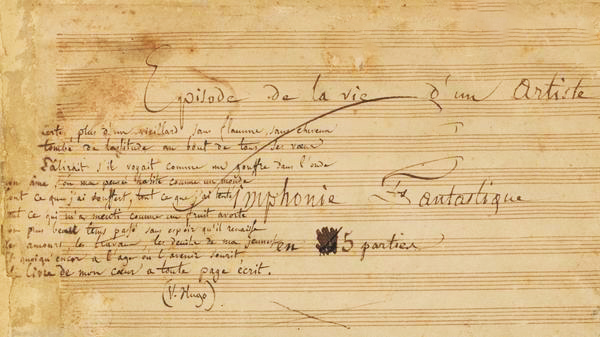 Episode de la vie d'un Artiste
certe, plus d'un vieillard sans flamme, sans cheveux
tombé de lassitude au bout de tous ses vœux
Pâlirait s'il voyait comme un gouffre dans l'onde
mon âme, où ma pensée habite comme un monde
tout ce que j'ai souffert, tout ce que j'ai tenté
tout ce qui m'a menti comme un fruit avorté
mon plus beau temps passé sans espoir qu'il renaisse
les amours, les travaux, les deuils de ma jeunesse
et quoiqu'encor à l'age où l'avenir sourit
le livre de mon cœur a toute page écrit.
(V. Hugo)
Symphonie Fantastique
en 5 parties